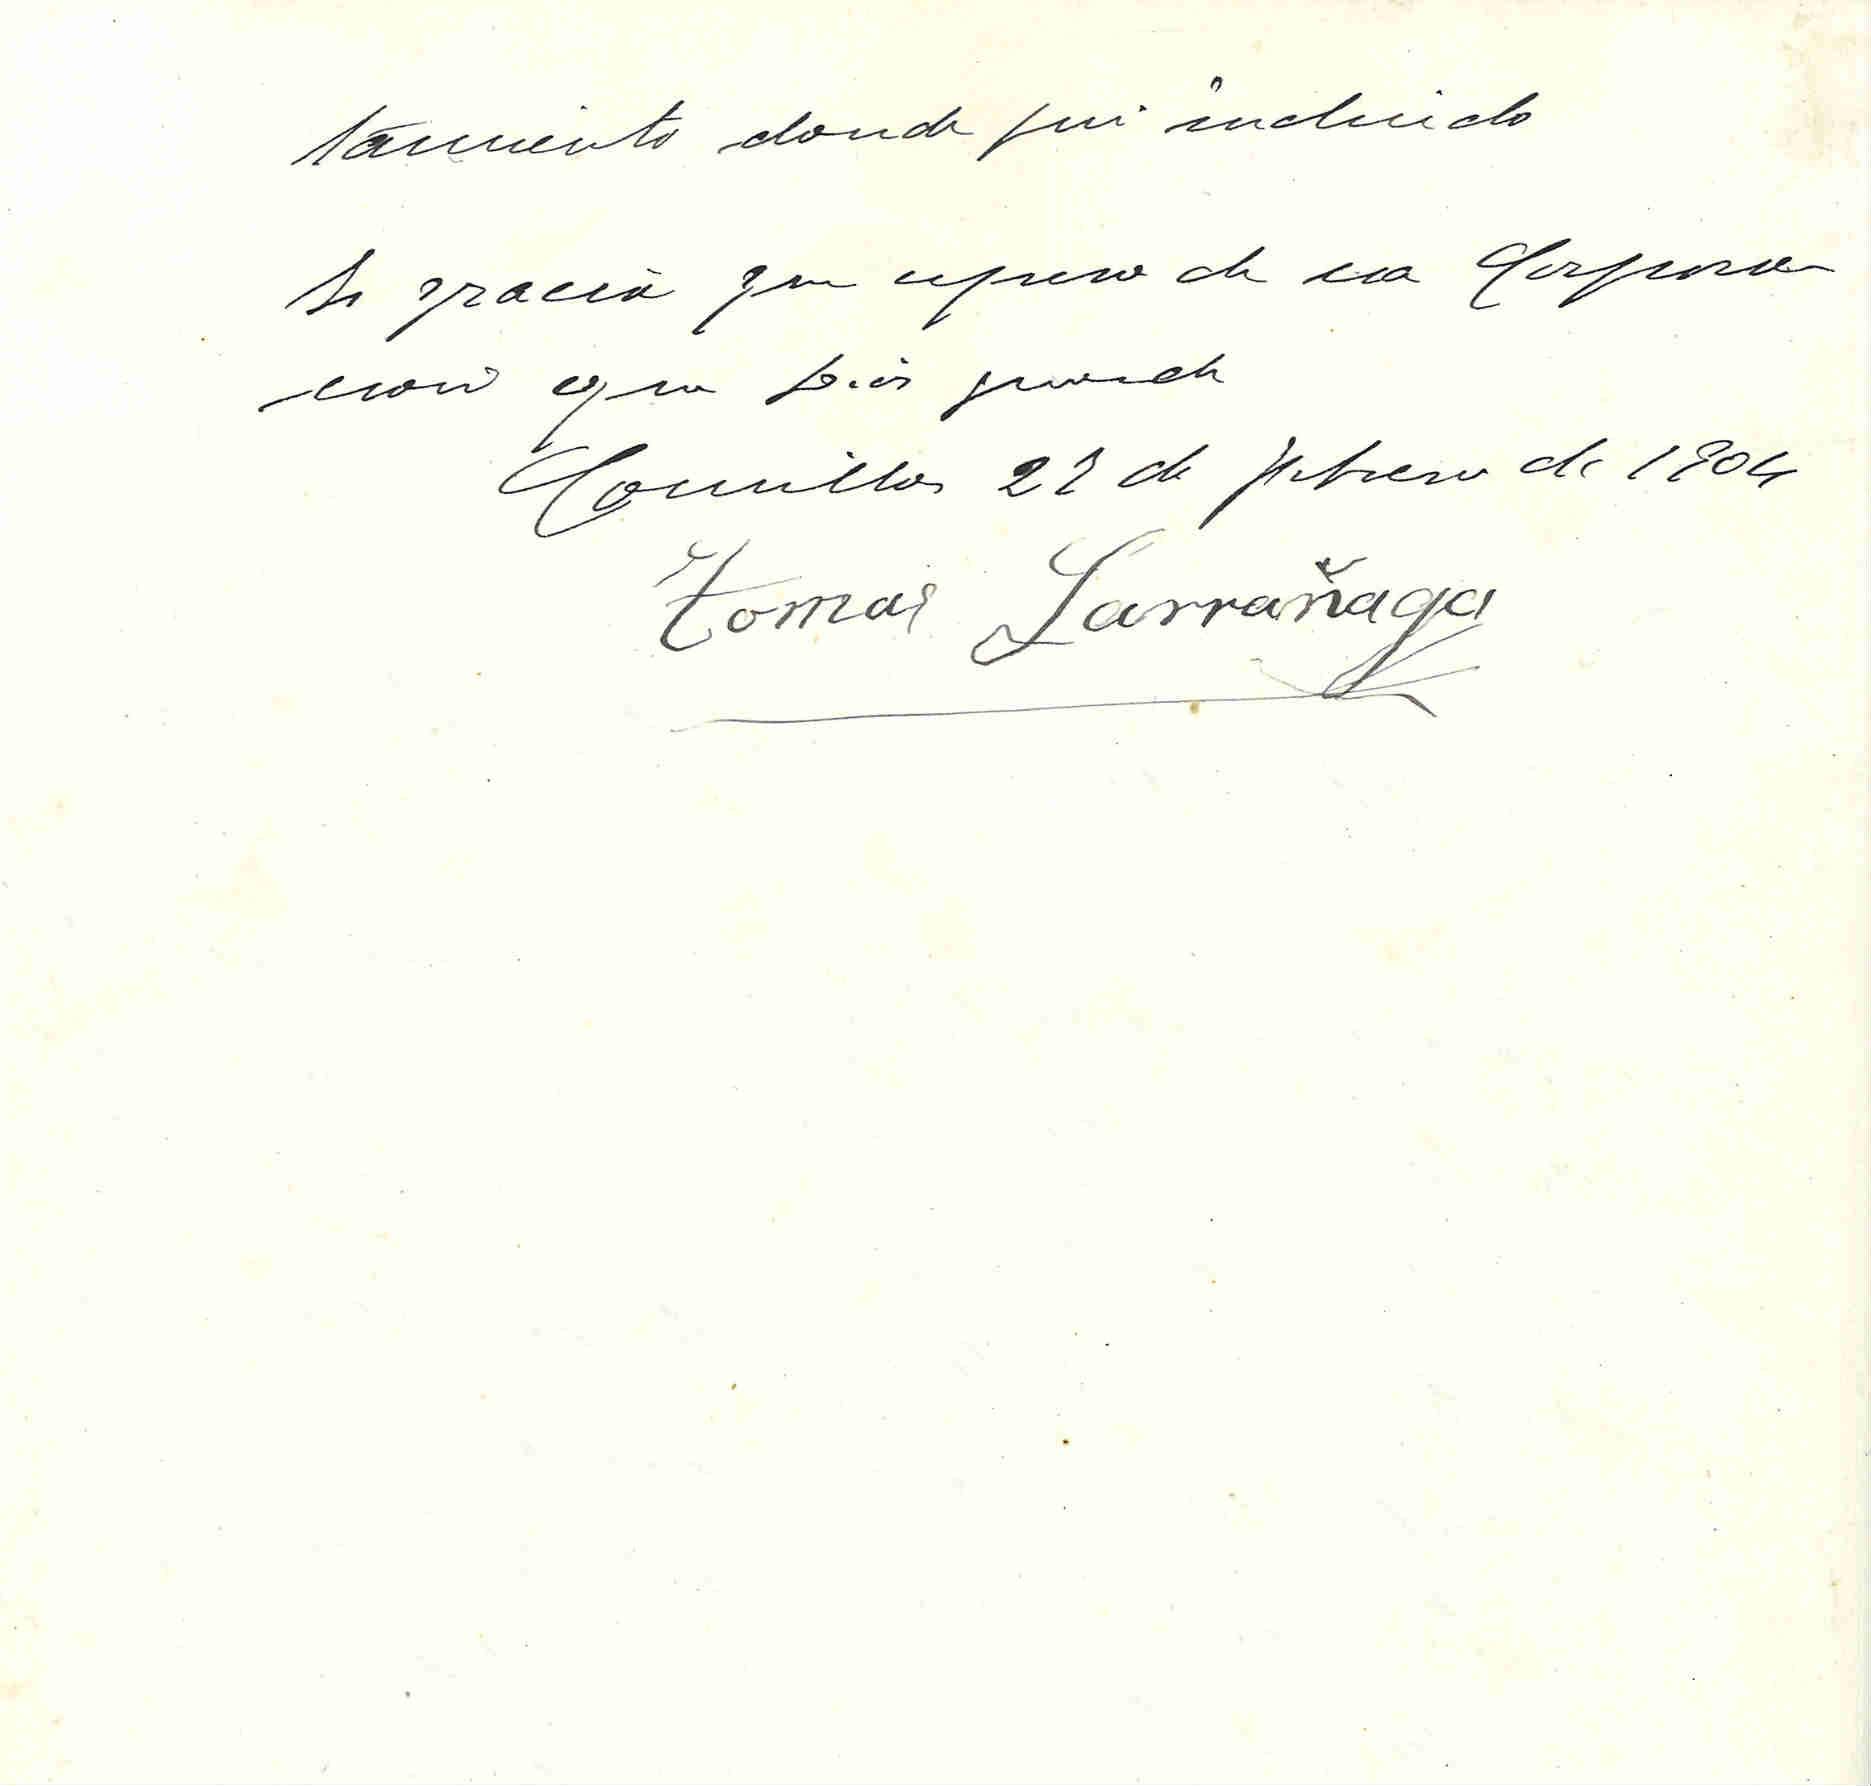 tamiento donde fui incluido
Es gracia que espero de esa Corpora-
cion cuya Dios guarde
Comillas 22 de febrero de 1904
Tomas Larrañaga